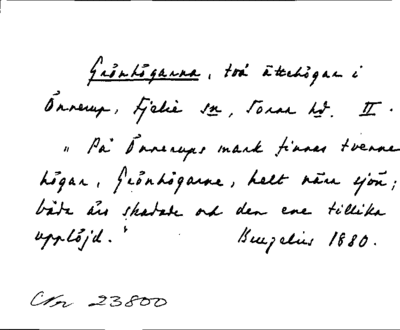 Grönhögarna, två ättehögar i
Önnerup, Fjelie sn, Torna hd. II.
"På Önnerups mark finnas tvenne
högar, Grönhögarne, helt nära sjön;
båda äro skadade och den ene tillika
upplöjd."  Bruzelius 1880.
23800